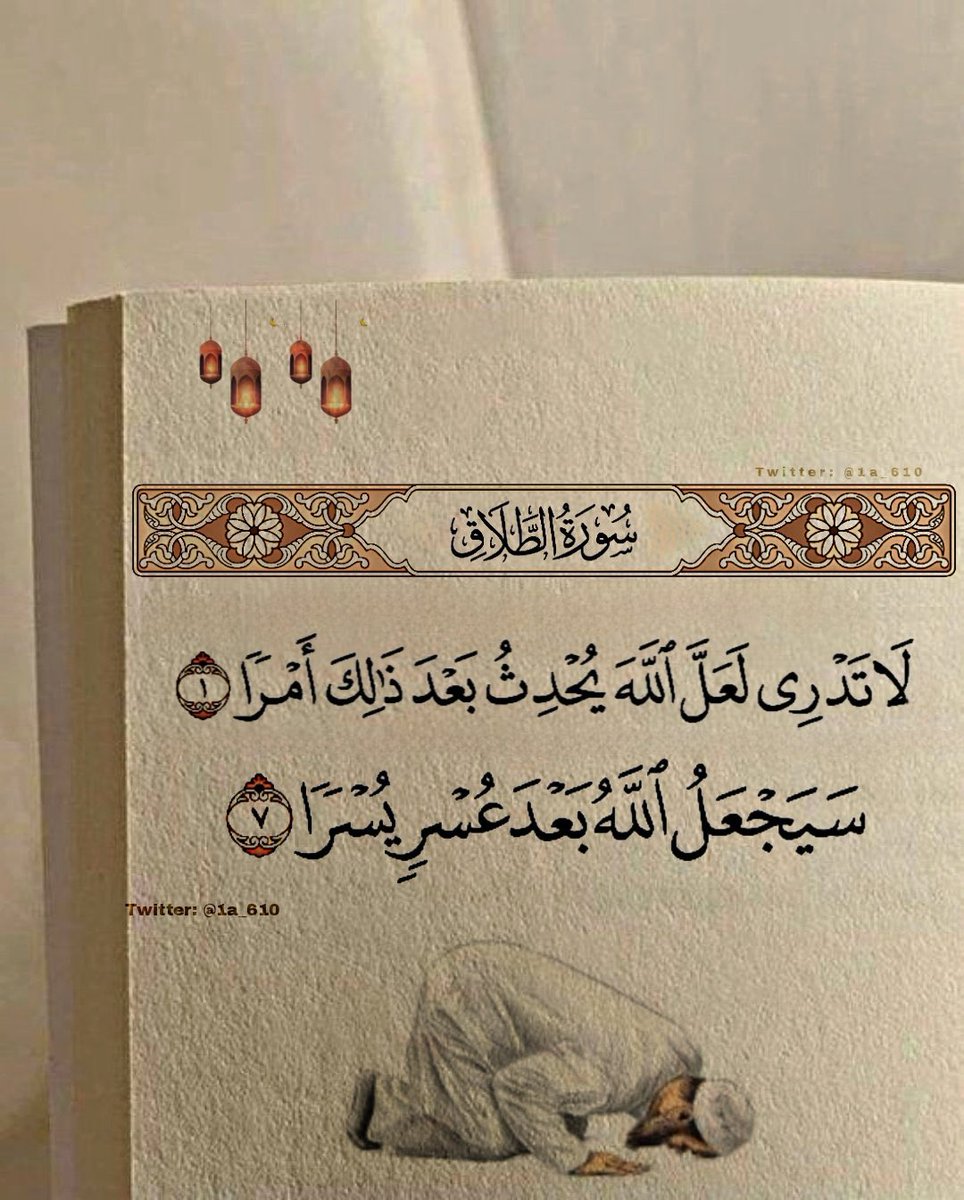 Twitter: @1a_610
سُورَةُ الطَّلَاقِ
لَا تَدْرِى لَعَلَّ ٱللَّهَ يُحْدِثُ بَعْدَ ذَٰلِكَ أَمْرًا ١
سَيَجْعَلُ ٱللَّهُ بَعْدَ عُسْرٍ يُسْرًا ٧
Twitter: @1a_610